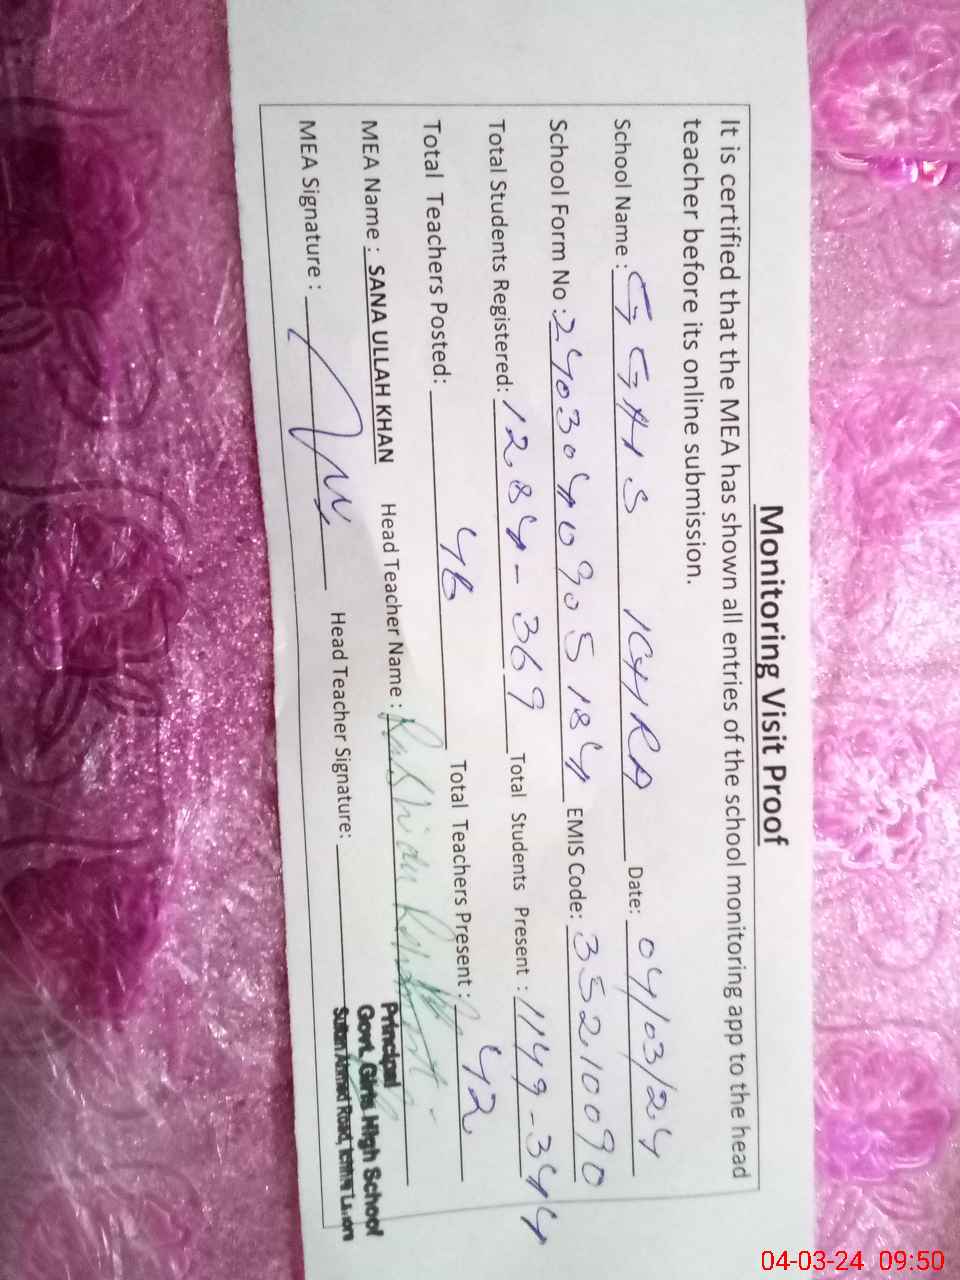 Monitoring Visit Proof
It is certified that the MEA has shown all entries of the school monitoring app to the head
teacher before its online submission.
School Name : GGHS ICHRA Date: 04/03/24
School Form No : 2403040905184 EMIS Code: 35210090
Total Students Registered: 1284-369 Total Students Present : 1149-344
Total Teachers Posted: 46 Total Teachers Present : 42
MEA Name : SANA ULLAH KHAN Head Teacher Name :
MEA Signature : Head Teacher Signature:
Principal
Govt. Girls High School
Sultan Ahmad Road,
04-03-24 09:50